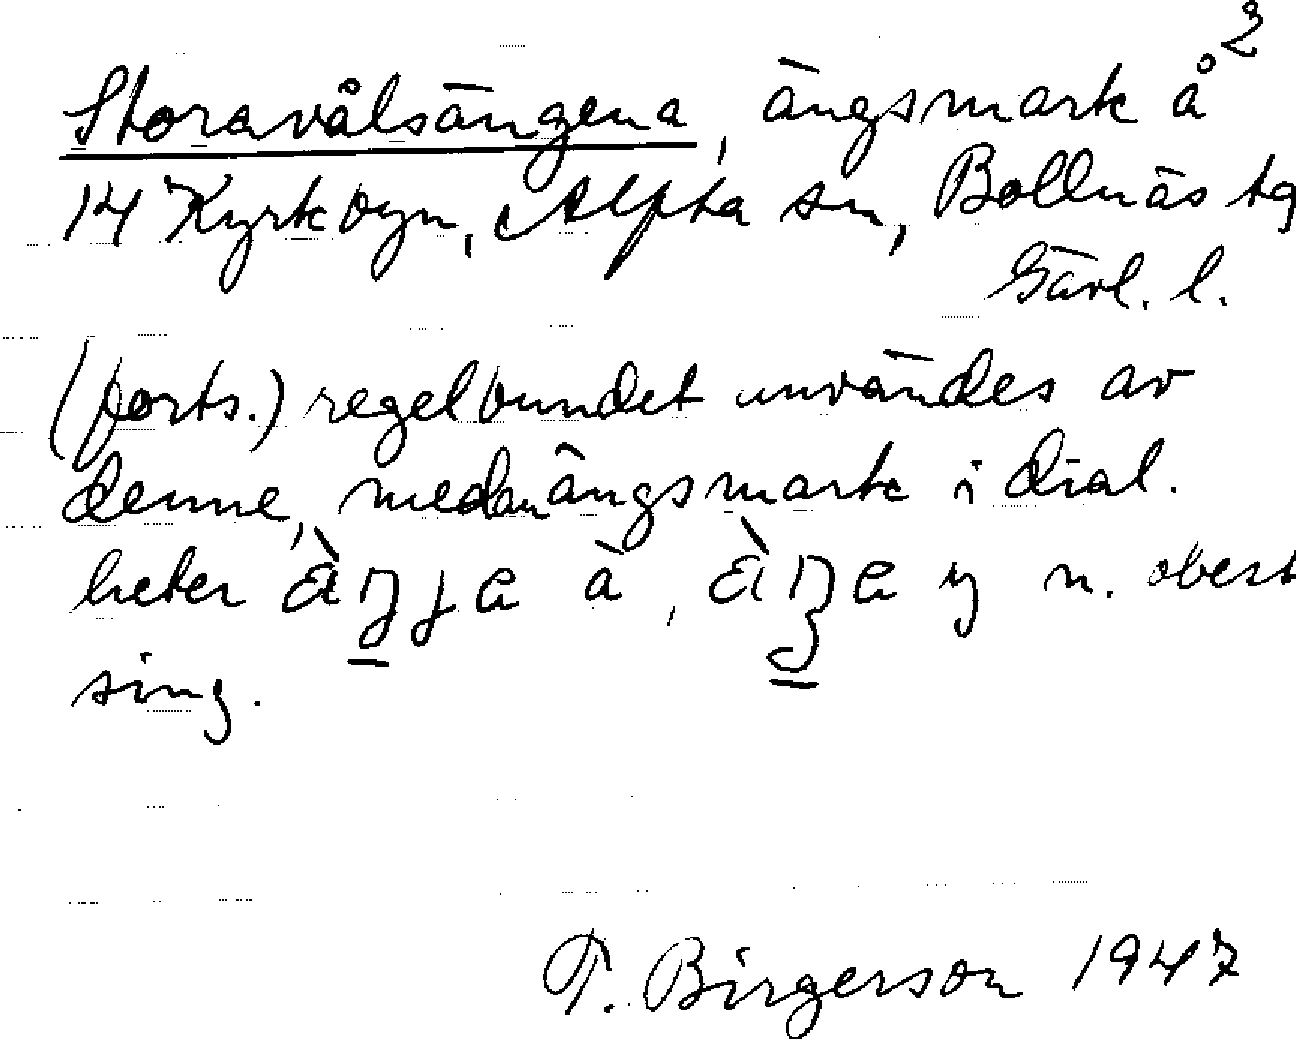 2
Storavålsängena, ängsmark å
14 Kyrkbyn, Alfta sn, Bollnäs tg
Gävl. l.
(forts.) regelbundet användes av
denne, medan ängsmark i dial.
heter à, n. obest
sing.
T. Birgerson 1947